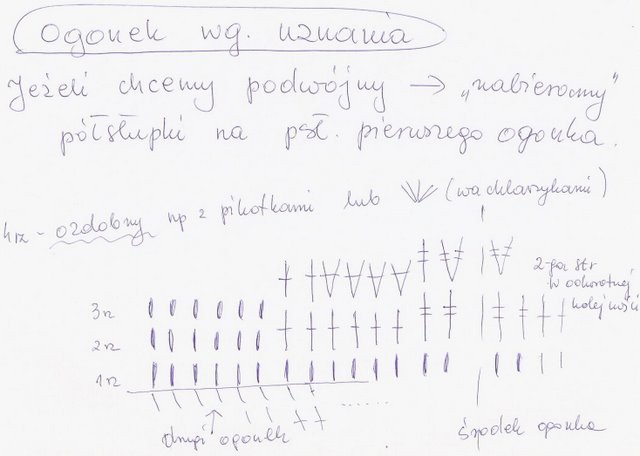 Ogonek wg. uznania
Jeżeli chcemy podwójny → „nabieramy"
półsłupki na psł. pierwszego ogonka.
4rz - ozdobny np z pikotkami lub (wachlarzykami)
2-ga str
w odwrotnej
kolejności
3rz
2rz
1rz
drugi ogonek
środek ogonka